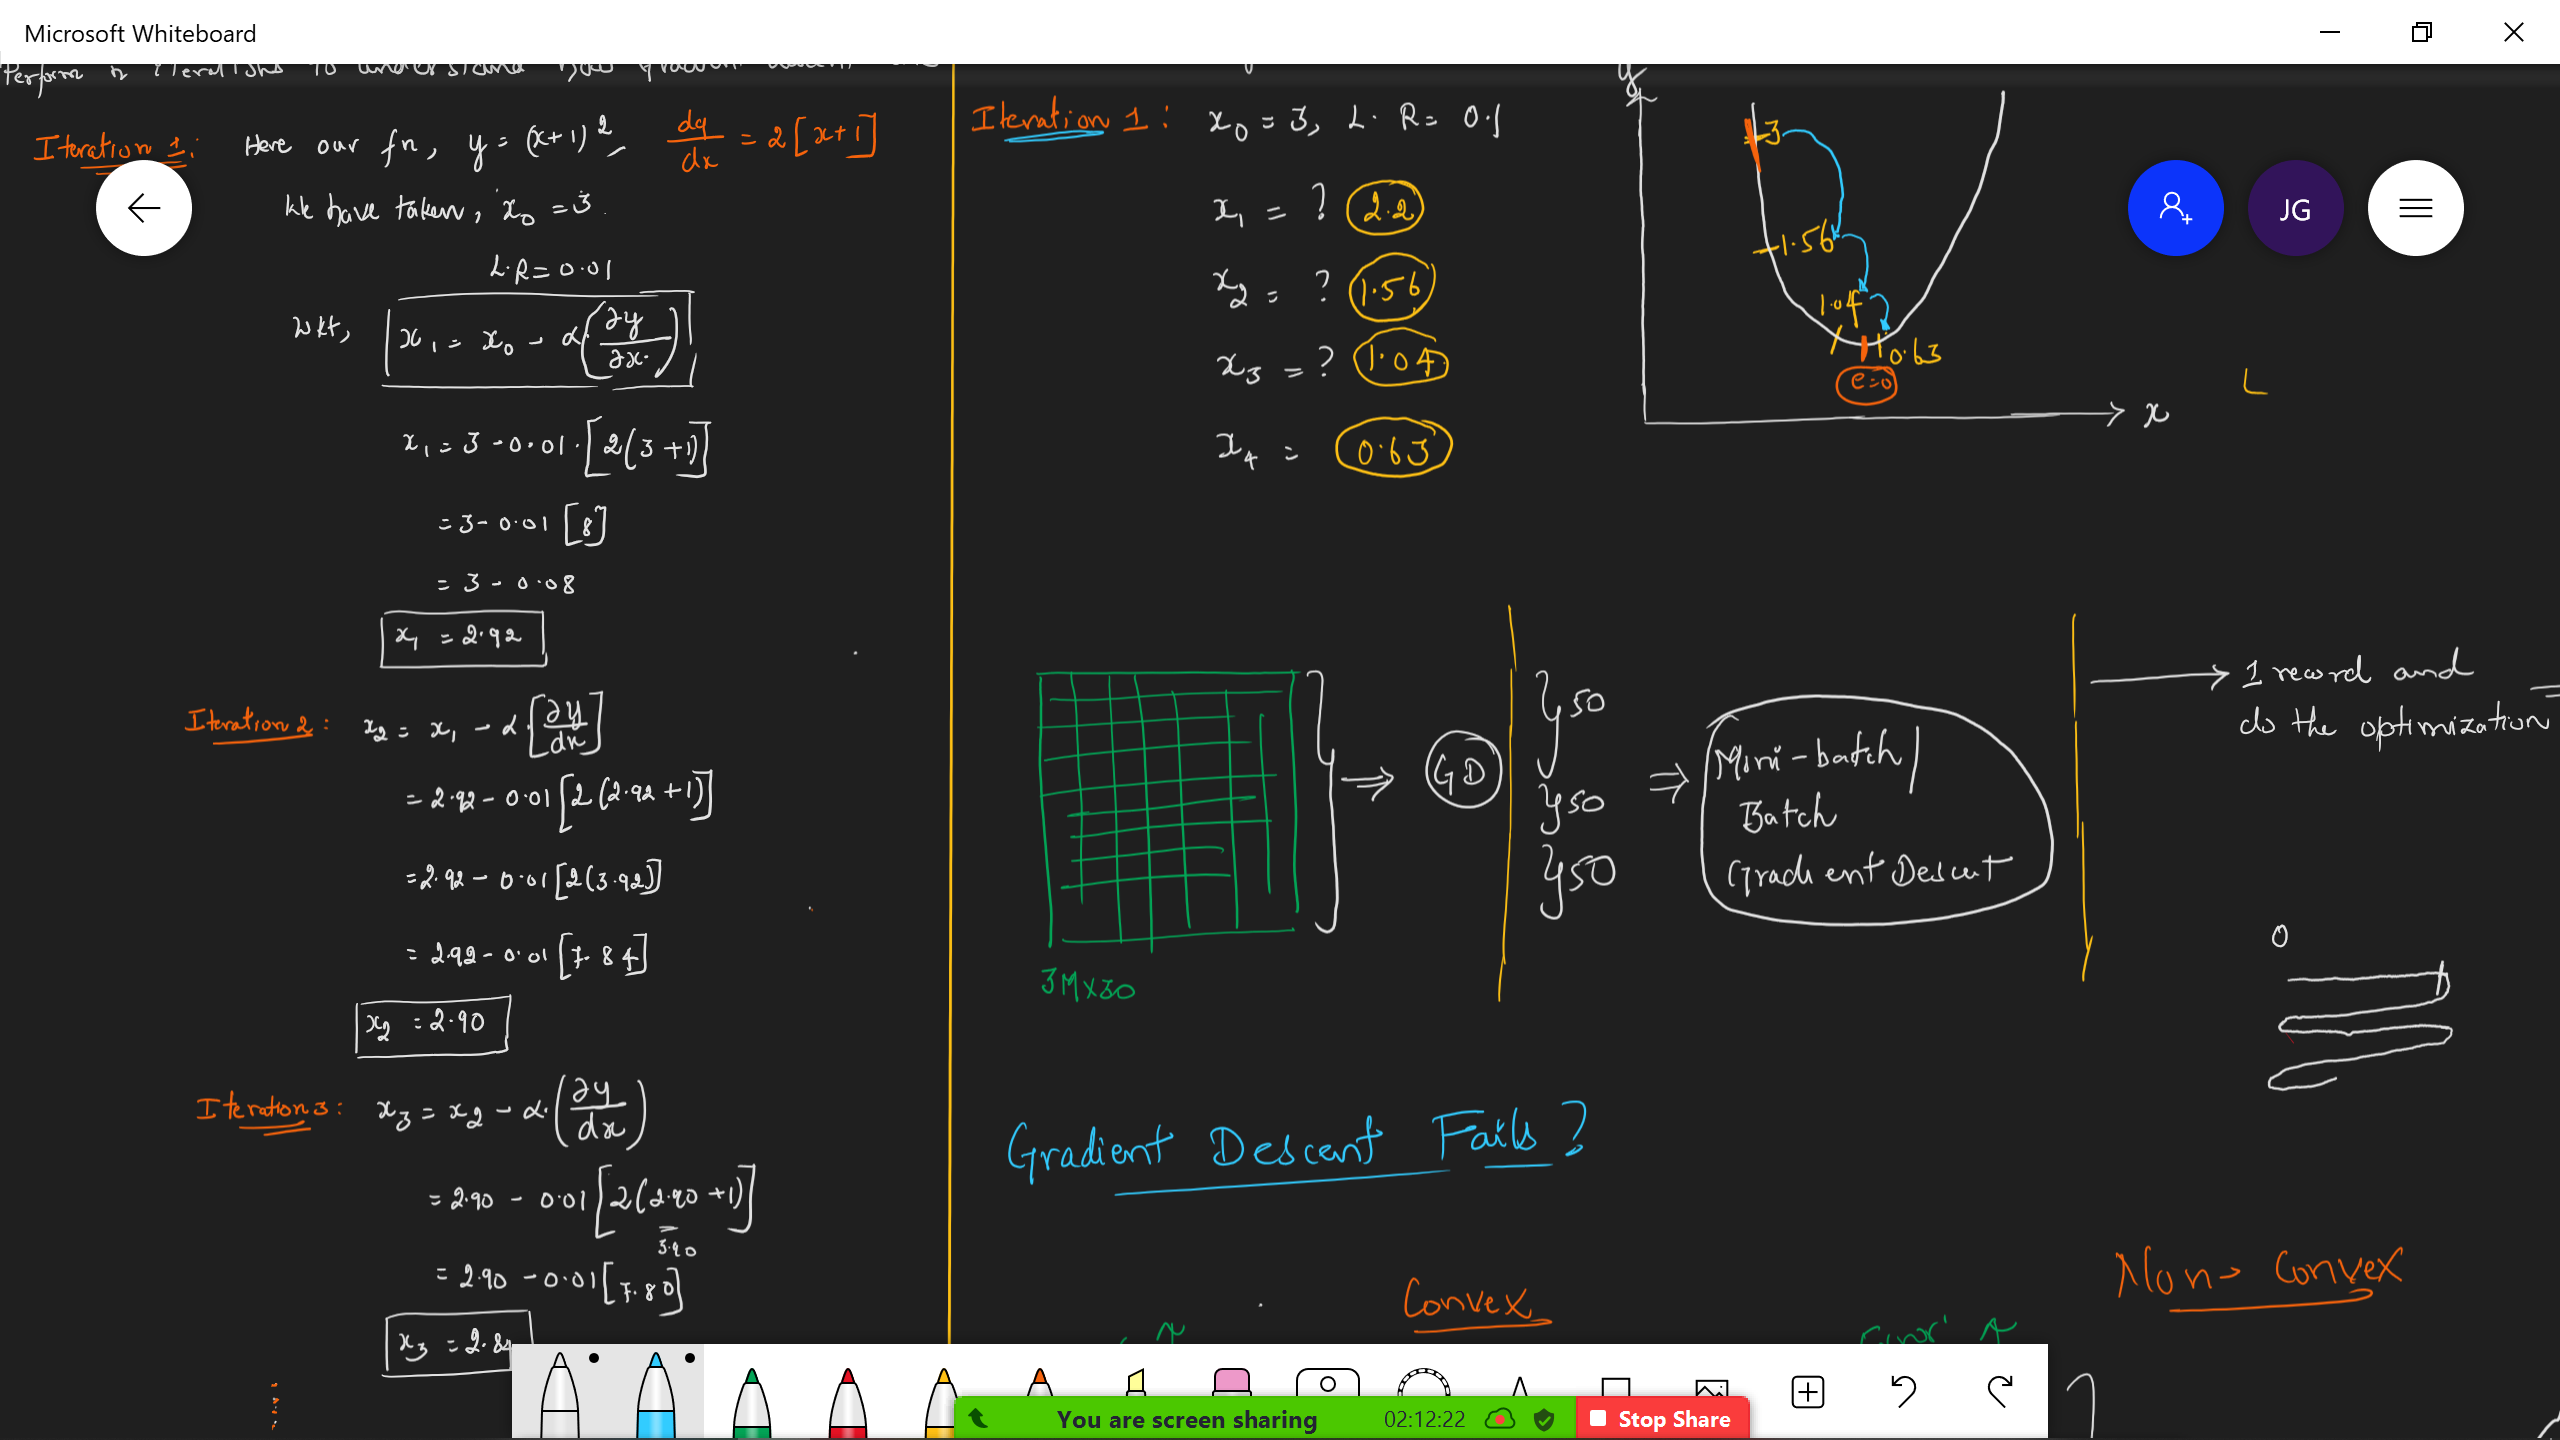 Microsoft Whiteboard
Perform n iterations to understand how gradient descent
Iteration 1: Here our fn, y = (x+1)², dy/dx = 2[x+1]
We have taken, x₀ = 3.
L.R = 0.01
wkt, x₁ = x₀ - α(∂y/∂x)
x₁ = 3 - 0.01 . [2(3+1)]
= 3 - 0.01 [8]
= 3 - 0.08
x₁ = 2.92
Iteration 2: x₂ = x₁ - α.[∂y/dx]
= 2.92 - 0.01 [2(2.92+1)]
= 2.92 - 0.01 [2(3.92)]
= 2.92 - 0.01 [7.84]
x₂ = 2.90
Iteration 3: x₃ = x₂ - α.(∂y/dx)
= 2.90 - 0.01 [2(2.90+1)]
3.90
= 2.90 - 0.01 [7.80]
x₃ = 2.8
Iteration 1: x₀ = 3, L. R = 0.1
x₁ = ? 2.2
x₂ = ? 1.56
x₃ = ? 1.04
x₄ = 0.63
y
3
1.56
1.04
0.63
e=0
x
JG
3M×30
GD
50
50
50
Mini-batch/
Batch
Gradient Descent
1 record and
do the optimization
0
Gradient Descent Fails?
Convex
Non-Convex
Error
You are screen sharing 02:12:22 Stop Share